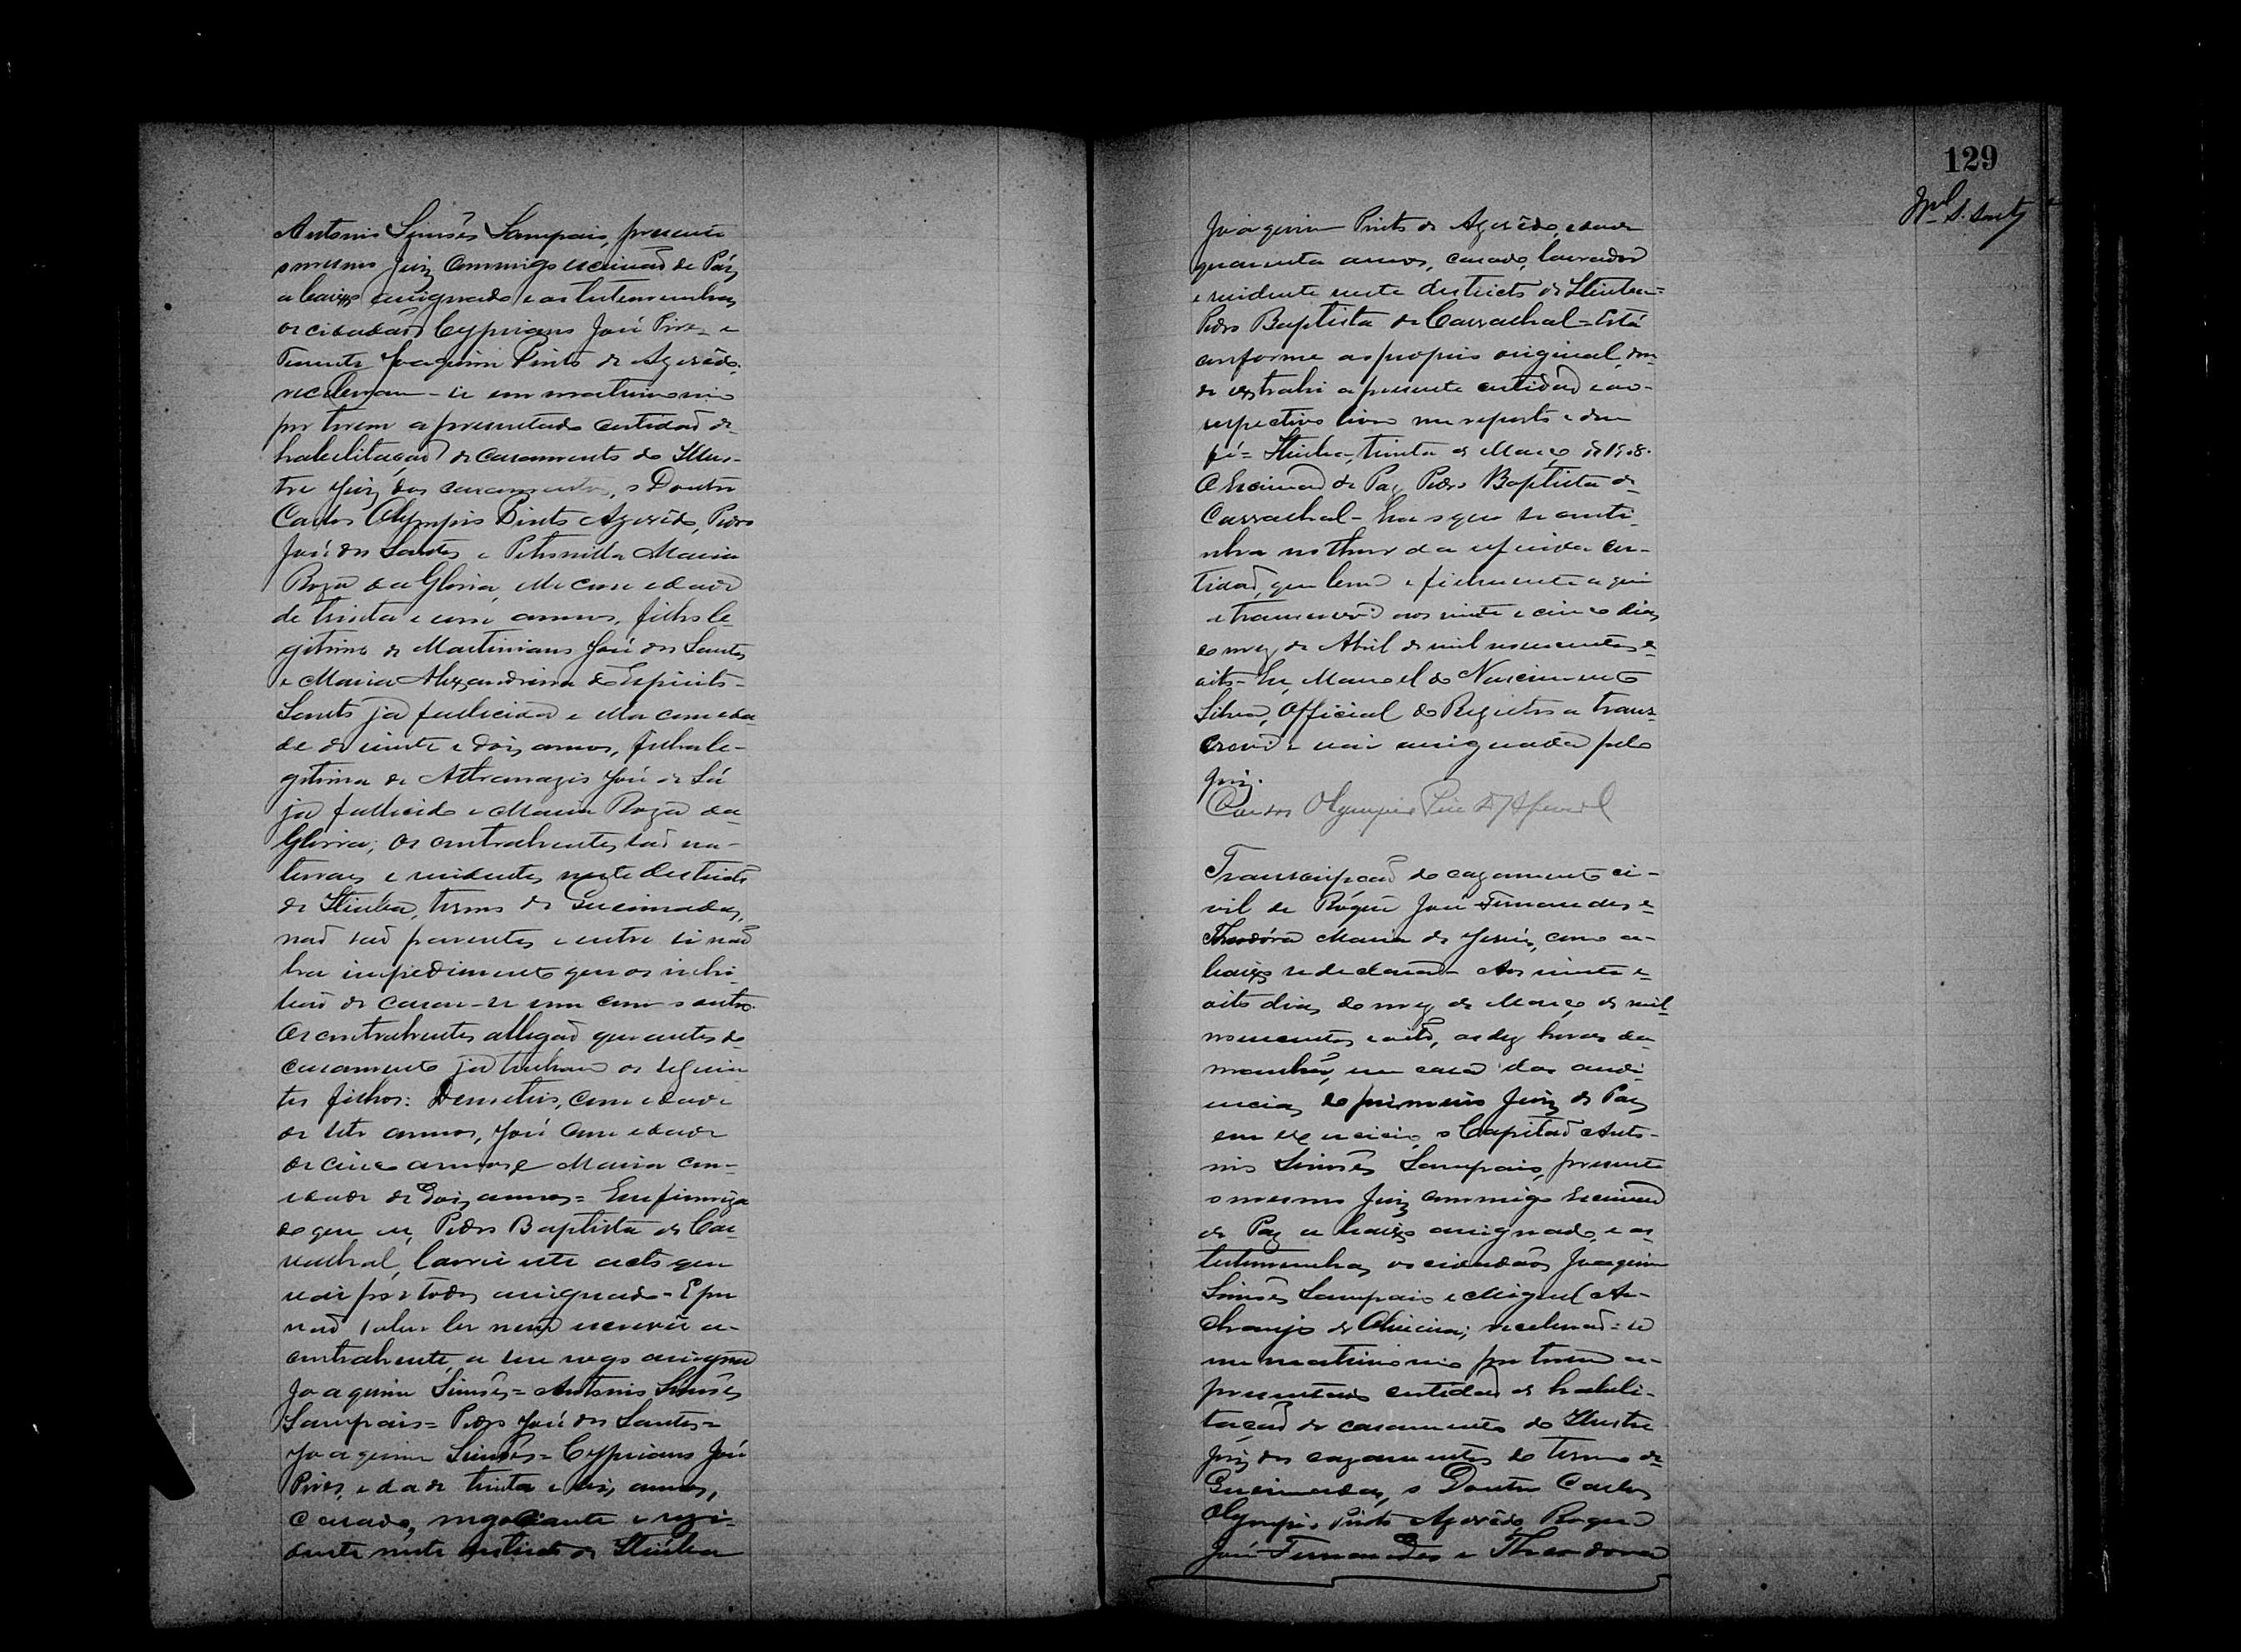 Antonio Simões Sampaio, presente
o mesmo Juiz commigo escrivão de Páz
abaixo assignado e as testemunhas
os cidadãos Cypriano José Pires e
Tenente Joaquim Pinto de Azevêdo,
receberam-se em matrimonio
por terem apresentado certidão de
habilitação de casamento do Illus-
tre Juiz dos casamentos, o Doutor
Carlos Olympio Pinto Azevêdo, Pedro
José dos Santos e Petronilla Maria
Roza da Gloria, elle com edade
de trinta e um annos, filho le-
gitimo de Martiniano José dos Santos
e Maria Alexandrina do Espirito-
Santo já fallecida e ella com eda-
de de vinte e dois annos, filha le-
gitima de José de Sá
já fallecido e Maria Roza da
Gloria; os contrahentes são na-
turaes e residentes neste districto
de Itiuba, termo de Queimadas,
não são parentes e entre si não
ha impedimento que os inhi-
bão de casar-se um com o outro.
Os contrahentes allegão que antes do
casamento já tinham os seguin-
tes filhos: Demetrio, com edade
de sete annos, José com edade
de cinco annos e Maria com
edade de dois annos = Em firmeza
do que eu, Pedro Baptista de Car-
vachal, lavrei este acto que
vai por todos assignado - E por
não saber ler nem escrever a
contrahente, a seu rogo assigna
Joaquim Simões = Antonio Simões
Sampaio = Pedro José dos Santos =
Joaquim Simões = Cypriano José
Pires, edade trinta e annos,
casado, negociante e rezi-
dente neste districto de Itiuba
129
Joaquim Pinto de Azevêdo, edade
quarenta annos, casado, lavrador
e residente neste districto de Itiuba =
Pedro Baptista de Carvachal = Está
conforme ao proprio original, don-
de extrahi a presente certidão e ao
respectivo livro me reporto e dou
fé = Itiuba, trinta de Março de 1908.
O Escrivão de Paz Pedro Baptista de
Carvachal - Era o que se conti-
nha no theor da referida cer-
tidão, que bem e fielmente aqui
a transcrevi aos vinte e cinco dias
do mez de Abril de mil novecentos e
oito - Eu, Manoel do Nascimento
Silva, Official do Registro a trans-
crevi e vai assignada pelo
Juiz.
Carlos Olympio Pinto d'Azevedo
Transcripção do cazamento ci-
vil de Róque José Fernandes e
Theodóra Maria de Jesús, como a-
baixo se declara - Aos vinte e
oito dias do mez de Março de mil
novecentos e oito, as dez horas da
manhã, em casa das audi-
encias do primeiro Juiz de Paz
em exercicio, o Capitão Anto-
nio Simões Sampaio, presente
o mesmo Juiz commigo Escrivão
de Paz abaixo assignado, e as
testemunhas, os cidadãos Joaquim
Simões Sampaio e Miguel Ar-
chanjo de Oliveira; receberão-se
em matrimonio por terem a-
presentado certidão de habili-
tação de casamento do Illustre
Juiz dos cazamentos do termo de
Queimadas, o Doutor Carlos
Olympio Pinto Azevêdo, Roque
José Fernandes e Theodora